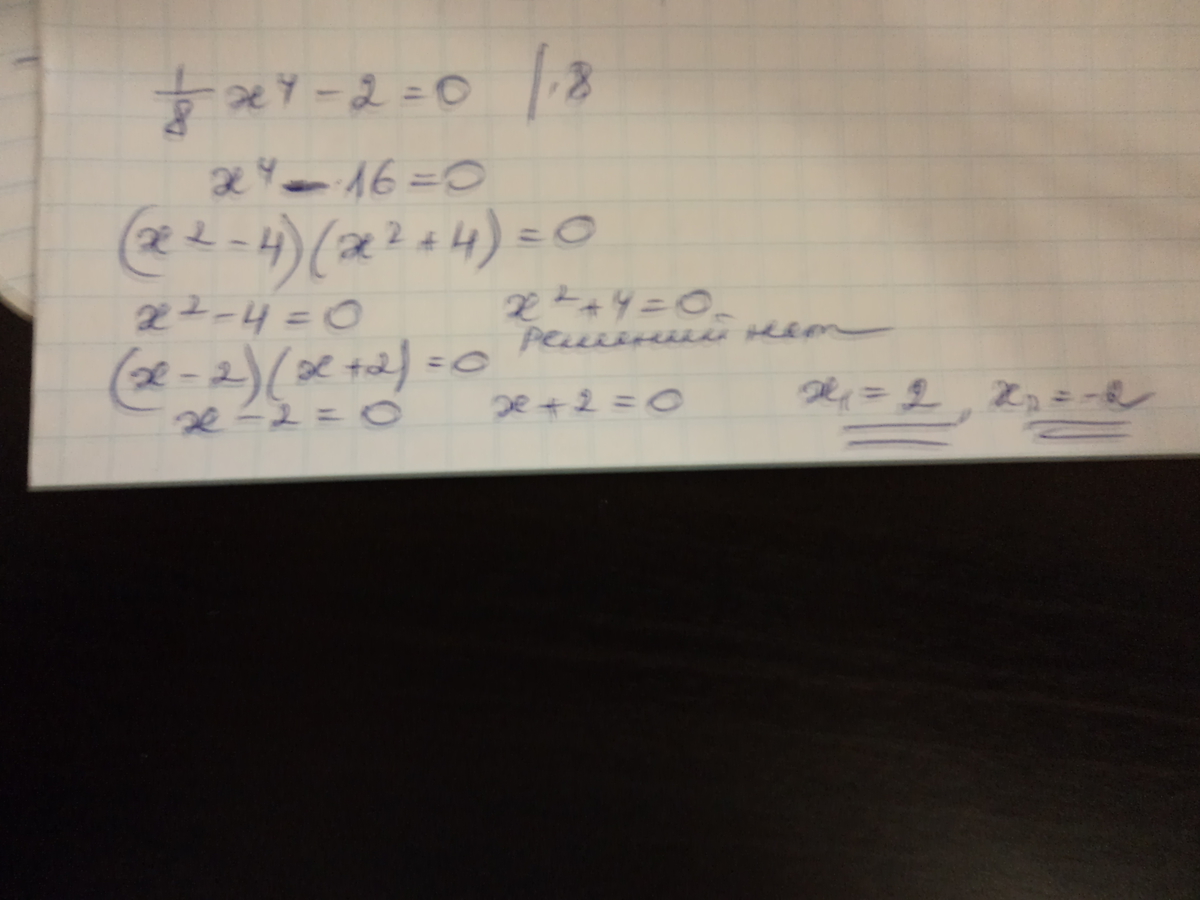 1/8 x⁴ - 2 = 0 | · 8
x⁴ - 16 = 0
(x² - 4)(x² + 4) = 0
x² - 4 = 0 x² + 4 = 0 -
решений нет
(x - 2)(x + 2) = 0
x - 2 = 0 x + 2 = 0 x₁ = 2, x₂ = -2